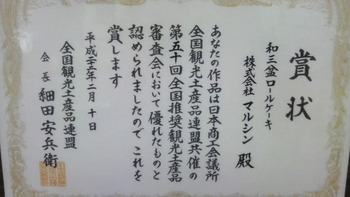 賞状
和三盆ロールケーキ
株式会社 マルシン 殿
あなたの作品は日本商工会議所
全国観光土産品連盟共催の
第五十回全国推奨観光土産品
審査会において優れたものと
認められましたので これを
賞します
平成二十三年二月十日
全国観光土産品連盟
会長 細田安兵衛